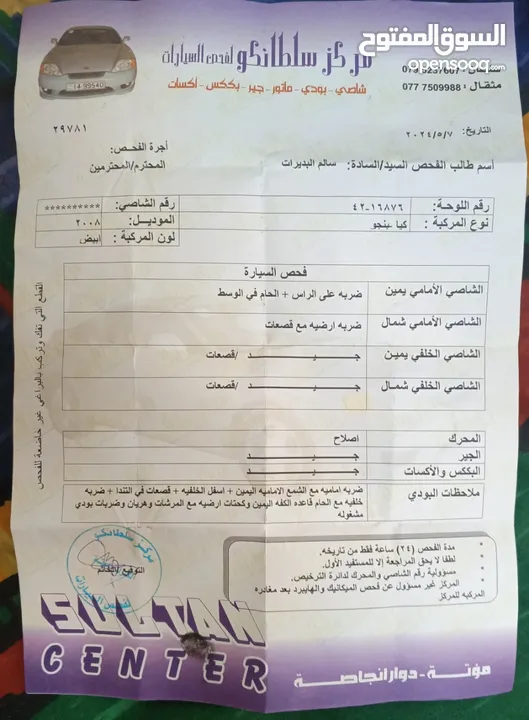 السوق المفتوح
opensooq.com
مركز سلطانكو لفحص السيارات
شاصي - بودي - ماتور - جير - بككس - أكسات
مثقال : 7509988 077
14-99540
التاريخ: ٢٠٢٤/٥/٧
٢٩٧٨١
أجرة الفحص:
أسم طالب الفحص السيد/السادة: سالم البديرات
المحترم/المحترمين
رقم اللوحة: ٤٢-١٦٨٧٦
رقم الشاصي: **********
نوع المركبة : كيا بنجو
الموديل: ٢٠٠٨
لون المركبة : ابيض
فحص السيارة
الشاصي الأمامي يمين ضربه على الراس + الحام في الوسط
الشاصي الأمامي شمال ضربه ارضيه مع قصعات
الشاصي الخلفي يمين جيد /قصعات
الشاصي الخلفي شمال جيد /قصعات
المحرك اصلاح
الجير جيد
البككس والأكسات جيد
ملاحظات البودي ضربه اماميه مع الشمع الاماميه اليمين + اسفل الخلفيه + قصعات في التندا + ضربه
خلفيه مع الحام قاعده الكفه اليمين وكحتات ارضيه مع المرشات وهريان وضربات بودي
مشغوله
القطع التي تفك وتركب بالبراغي غير خاضعة للفحص
• مدة الفحص (٢٤) ساعة فقط من تاريخه.
• لطفا لا يحق المراجعة إلا للمستفيد الأول.
• مسؤولية رقم الشاصي والمحرك لدائرة الترخيص.
• المركز غير مسؤول عن فحص الميكانيك والهايبرد بعد مغادره
المركبه للمركز
مركز سلطانكو
لفحص السيارات
SULTAN
CENTER
مؤتة - دوار انجاصة